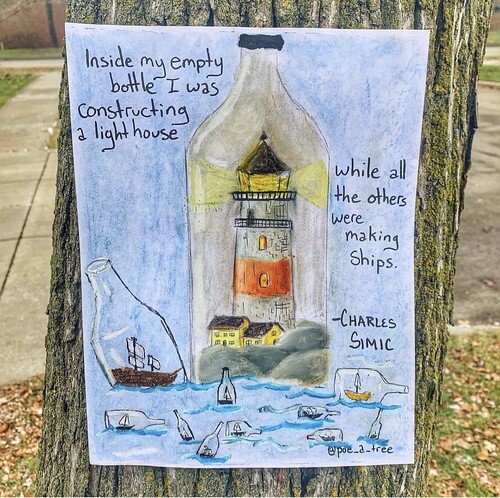 Inside my empty
bottle I was
constructing
a lighthouse
while all
the others
were
making
ships.
-CHARLES
SIMIC
@poe_a_tree